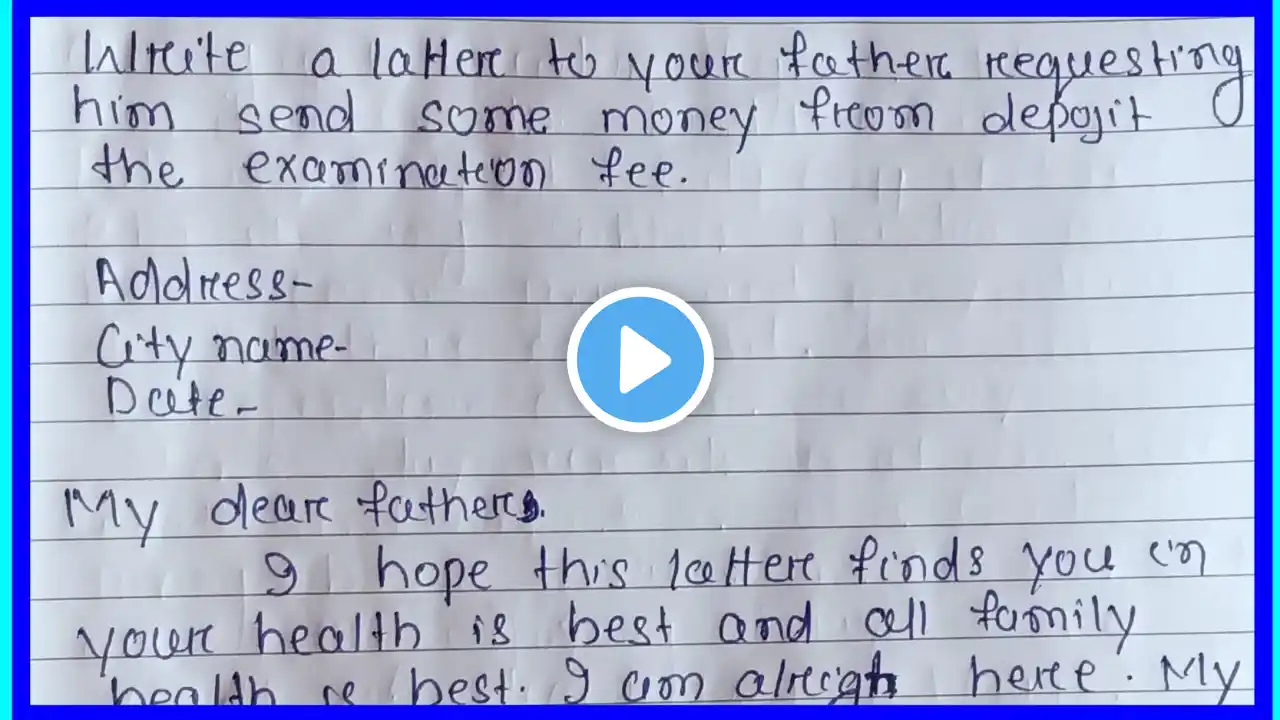 Write a latter to your father requesting
him send some money from deposit
the examination fee.
Address-
City name-
Date-
My dear father,
I hope this latter finds you in
your health is best and all family
health is best. I am alrigh here. My